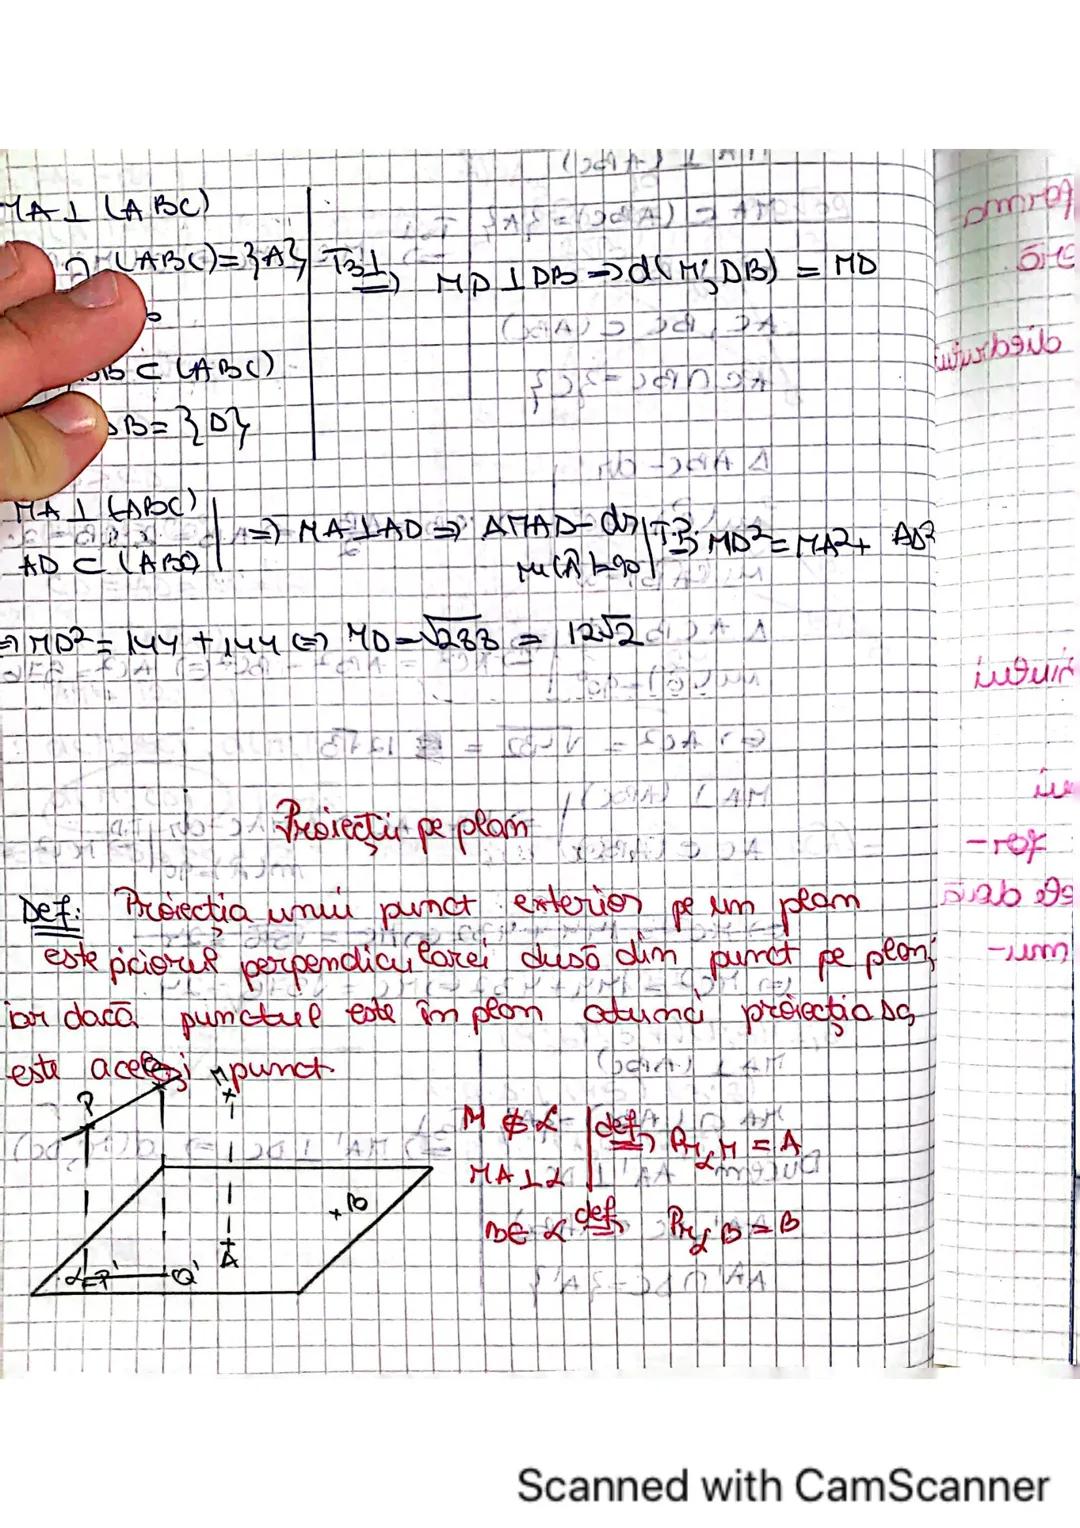 MA ⊥ (ABC)
(ABC)={A} T3⊥ ⇒ MD ⊥ DB ⇒ d(M;DB) = MD
DB ⊂ (ABC)
DB={D}
MA ⊥ (ABC)
AD ⊂ (ABC) | ⇒ MA⊥AD ⇒ ΔMAD-dr | T.P. ⇒ MD²=MA²+ AD²
m(Â)=90
⇒ MD²=144+144 ⇔ MD=√288 = 12√2
Proiecții pe plan
Def: Proiecția unui punct exterior pe un plan
este piciorul perpendicularei dusă din punct pe plan;
iar dacă punctul este în plan atunci proiecția sa
este același punct.
P Q M
M ∉ α | def ⇒ Pr α M = A
MA⊥α
B∈ α def ⇒ Pr α B = B
B
A
α P' Q'
Scanned with CamScanner